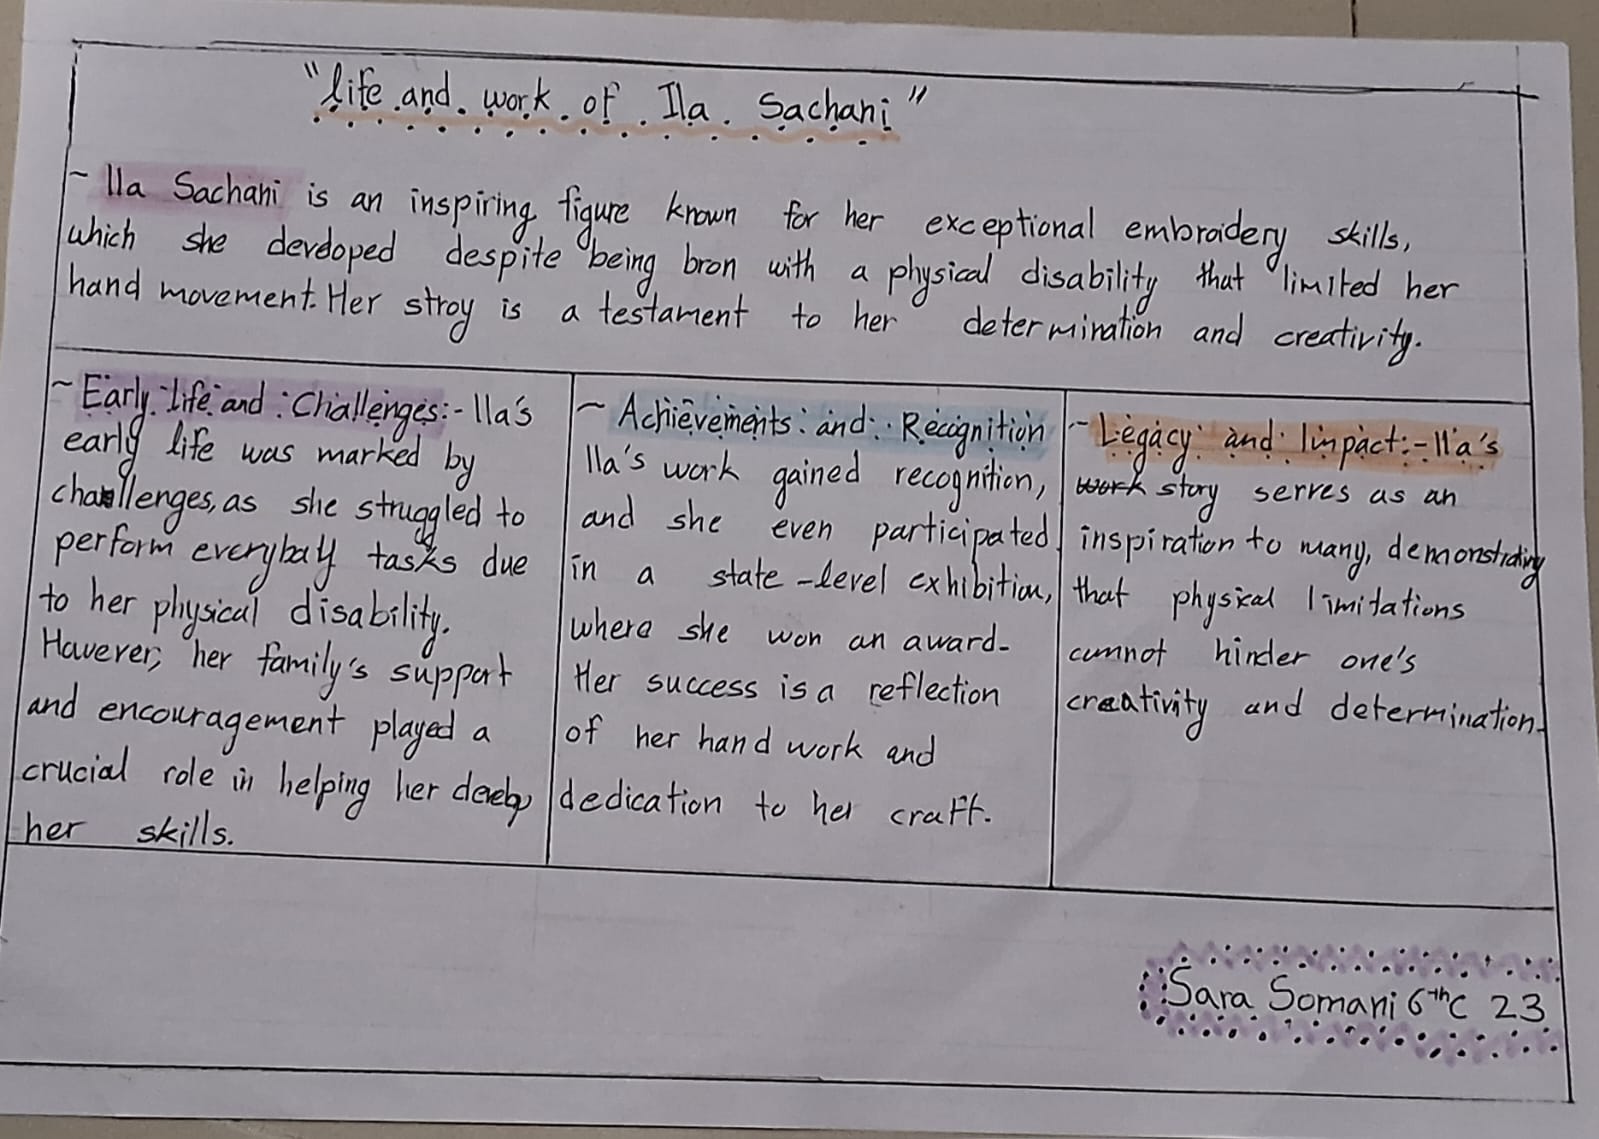 "life and work of Ila Sachani"
~ Ila Sachani is an inspiring figure known for her exceptional embroidery skills,
which she devdoped despite being bron with a physical disability that limited her
hand movement. Her stroy is a testament to her determination and creativity.
~ Early life and Challenges:- Ila's
early life was marked by
challenges, as she struggled to
perform everybay tasks due
to her physical disability.
However, her family's support
and encouragement played a
crucial role in helping her develop
her skills.
~ Achievements and Recognition
Ila's work gained recognition,
and she even participated
in a state-level exhibition,
where she won an award.
Her success is a reflection
of her hand work and
dedication to her craft.
~ Legacy and Impact:- Ila's
work story serves as an
inspiration to many, demonstrating
that physical limitations
cannot hinder one's
creativity and determination.
Sara Somani 6th C 23